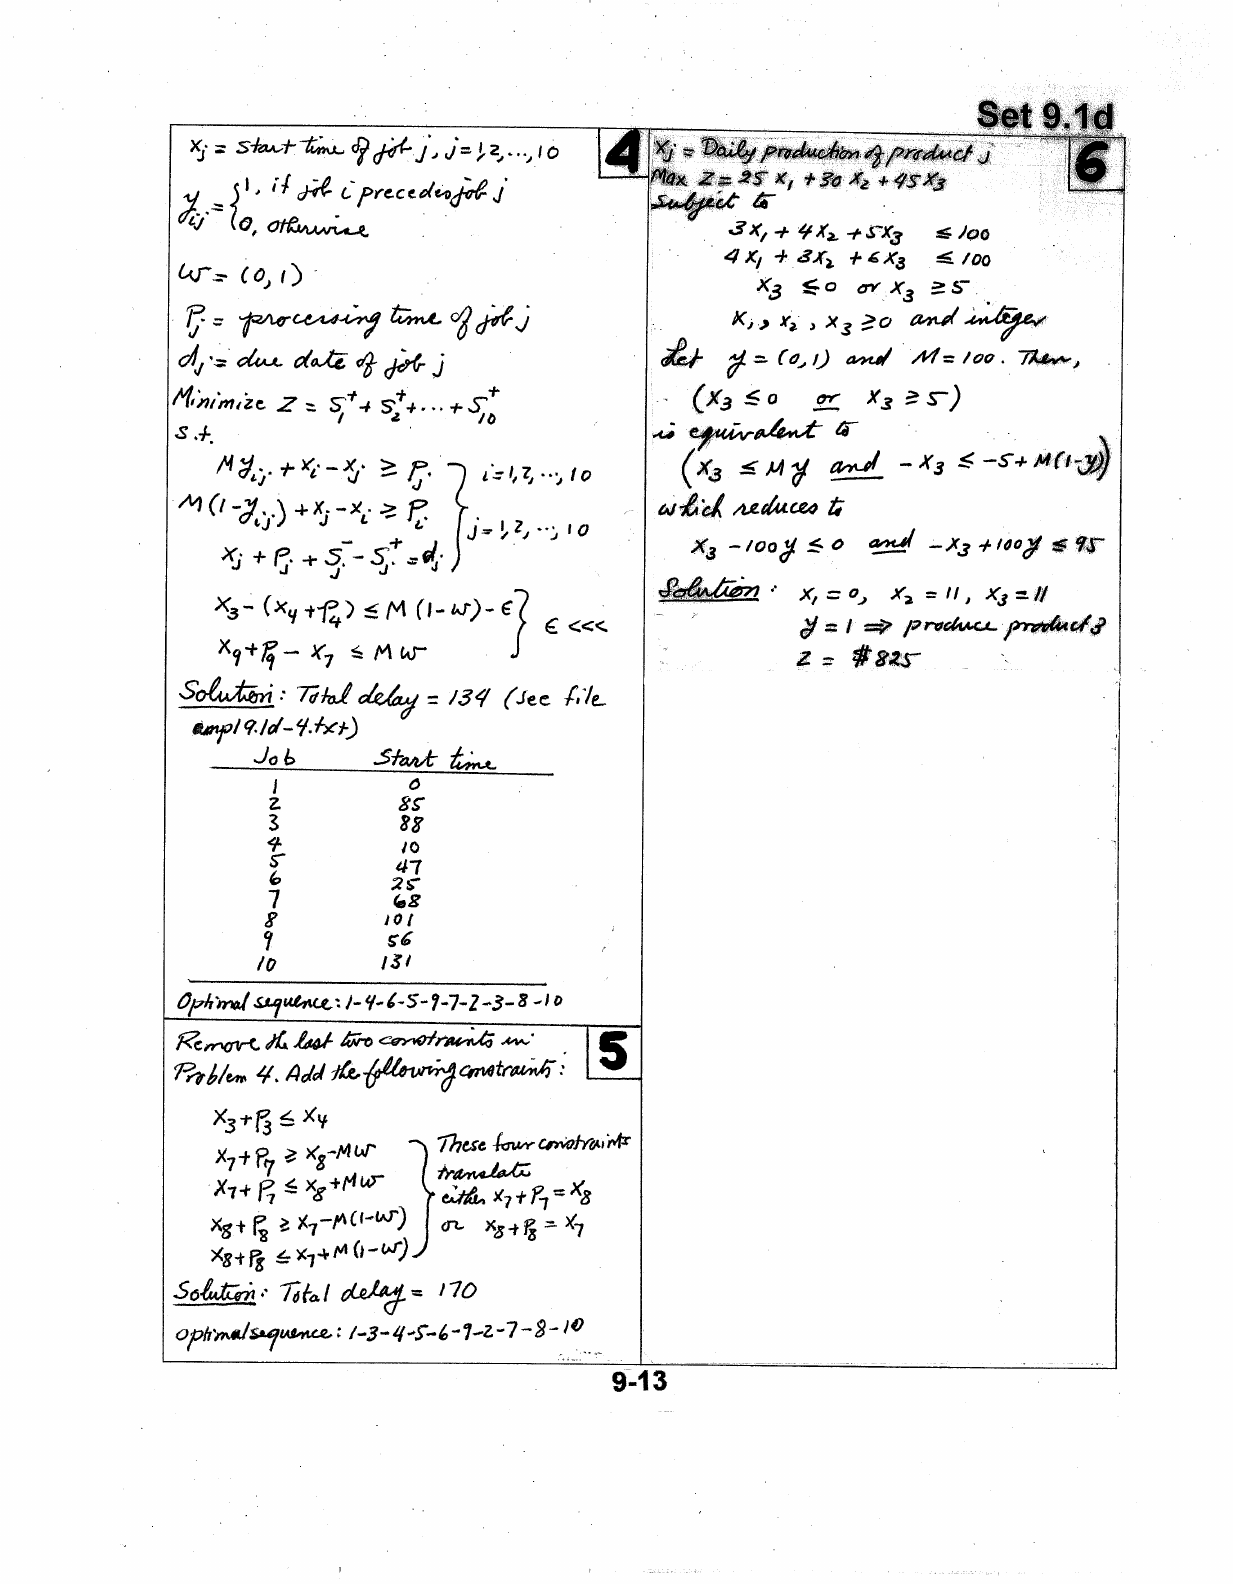 Set 9.1d
4
xj = start time of job j, j = 1, 2, ..., 10
yij = { 1, if job i precedes job j
0, otherwise
w = (0, 1)
Pj = processing time of job j
dj = due date of job j
Minimize Z = S1+ + S2+ + ... + S10+
s.t.
M yij + xi - xj ≥ Pj } i = 1, 2, ..., 10
M(1 - yij) + xj - xi ≥ Pi j = 1, 2, ..., 10
xj + Pj + Sj- - Sj+ = dj
x3 - (x4 + P4) ≤ M(1-w) - ϵ } ϵ <<<
x9 + P9 - x7 ≤ M w
Solution: Total delay = 134 (see file
ampl9.1d-4.txt)
Job Start time
1 0
2 85
3 88
4 10
5 47
6 25
7 68
8 101
9 56
10 131
Optimal sequence: 1-4-6-5-9-7-2-3-8-10
5
Remove the last two constraints in
Problem 4. Add the following constraints:
x3 + P3 ≤ x4
x7 + P7 ≥ x8 - Mw } These four constraints
x7 + P7 ≤ x8 + Mw translate
either x7 + P7 = x8
x8 + P8 ≥ x7 - M(1-w) or x8 + P8 = x7
x8 + P8 ≤ x7 + M(1-w)
Solution: Total delay = 170
optimal sequence: 1-3-4-5-6-9-2-7-8-10
6
xj = Daily production of product j
Max Z = 25 x1 + 30 x2 + 45 x3
Subject to
3x1 + 4x2 + 5x3 ≤ 100
4x1 + 3x2 + 6x3 ≤ 100
x3 ≤ 0 or x3 ≥ 5
x1, x2, x3 ≥ 0 and integer
Let y = (0,1) and M = 100. Then,
(x3 ≤ 0 or x3 ≥ 5)
is equivalent to
(x3 ≤ My and -x3 ≤ -5 + M(1-y))
which reduces to
x3 - 100y ≤ 0 and -x3 + 100y ≤ 95
Solution: x1 = 0, x2 = 11, x3 = 11
y = 1 ⇒ produce product 3
Z = $825
9-13